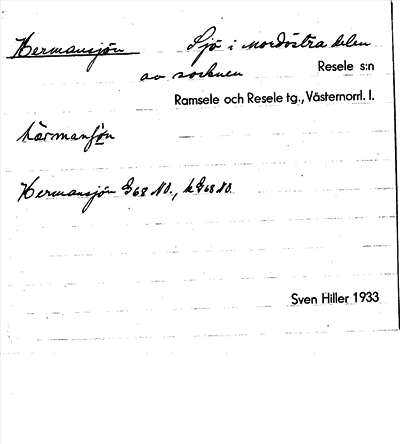 Hermansjön Sjö i nordöstra delen
av socknen Resele s:n
Ramsele och Resele tg., Västernorrl. l.
härmanʃǫ̈n
Hermansjön G68 NO., k G68 NO.
Sven Hiller 1933